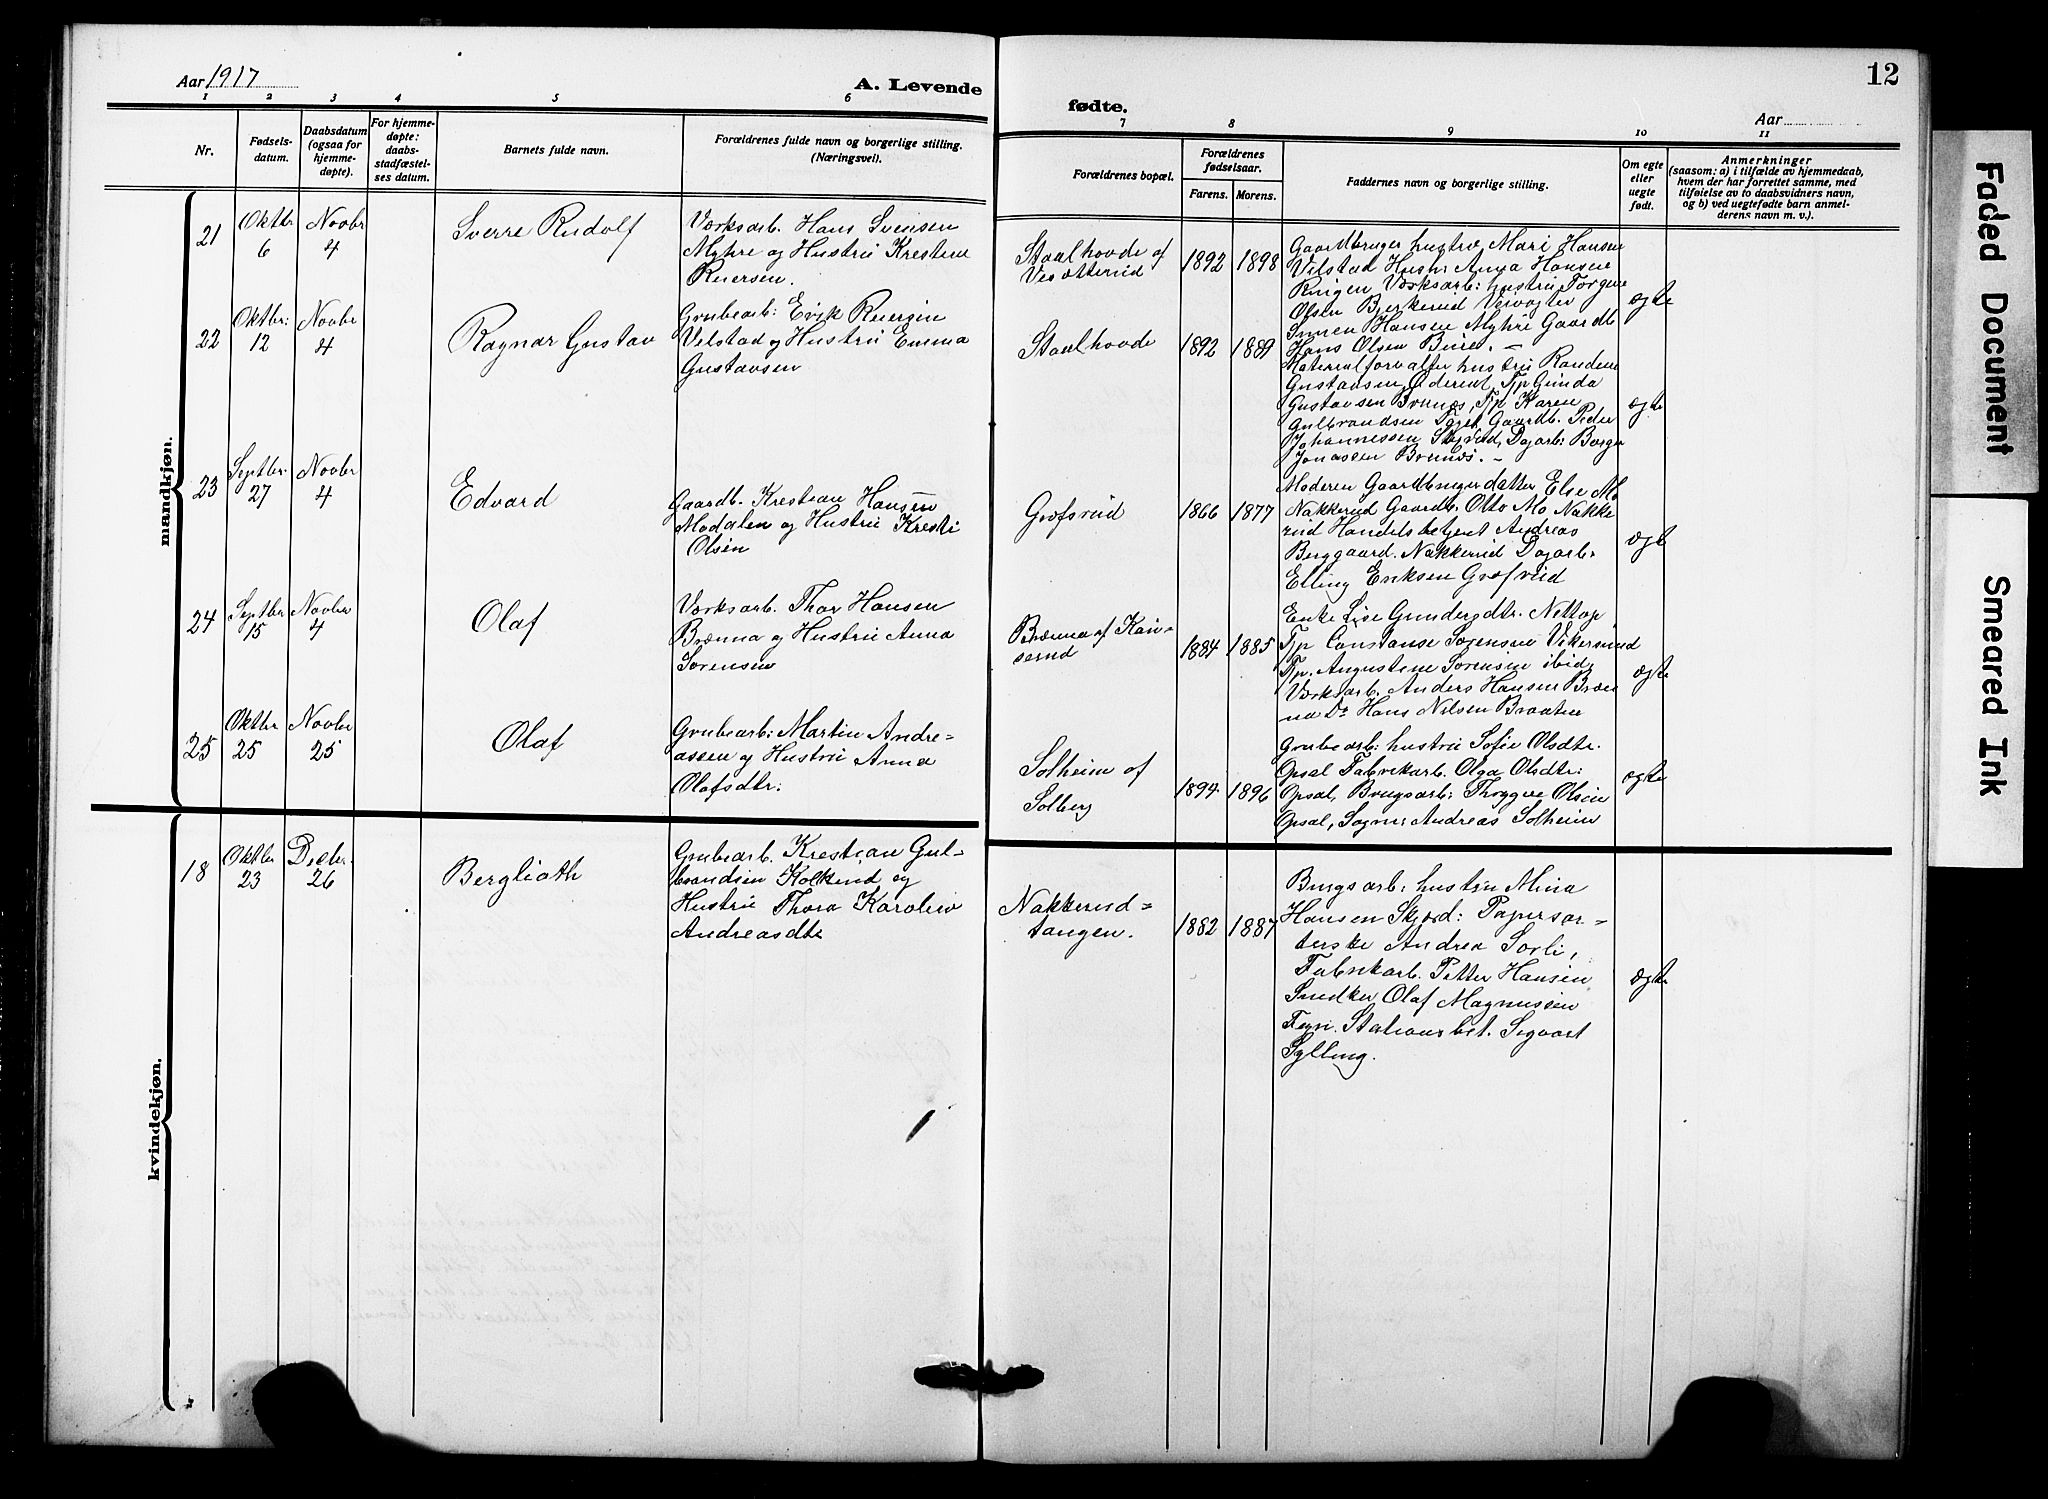 Aar 1917
A. Levende
fødte.
Aar
12
1 2 3 4 5 6 7 8 9 10 11
Nr.
Fødsels-
datum.
Daabsdatum
(ogsaa for
hjemme-
døpte).
For hjemme-
døpte:
daabs-
stadfæstel-
ses datum.
Barnets fulde navn.
Forældrenes fulde navn og borgerlige stilling.
(Næringsvei).
Forældrenes bopæl.
Forældrenes
fødselsaar.
Farens. Morens.
Faddernes navn og borgerlige stilling.
Om egte
eller
uegte
født.
Anmerkninger
(saasom: a) i tilfælde av hjemmedaab,
hvem der har forrettet samme, med
tilføielse av to daabsvidners navn,
og b) ved uegtefødte barn anmel-
derens navn m. v.).
mandkjøn.
21
Oktbr
6
Novbr
4
Sverre Rudolf
Værksarb. Hans Svensen
Myhre og Hustru Krestine
Iversen.
Staalhovde af
1892 1898
Gaardbruger hustru Mari Hansen
Velstad Hustru Anna Hansen
Værksarb: hustru Torgine
Olsen Bjerkerud Veivogter
Hansen Myhre Gaardb
Hans Olsen Bure. –
ægte
22
Oktbr:
12
Novbr
4
Ragnar Gustav
Grubearb: Erik Iversen
Velstad og Hustru Emma
Gustavsen
Staalhovde
1892 1889
Materialforvalter hustru Randine
Gustavsen Tjp Gunda
Gustavsen Brunæs, Tjp Karen
Gulbrandsen Gaardb. Peder
Johannessen Dagarb: Borger
Jonassen Brunæs. –
ægte
23
Septbr.
27
Novbr
4
Edvard
Gaardb. Krestian Hansen
Modalen og Hustru Kresti
Olsen
Grøfsrud
1866 1877
Moderen Gaardbrugerdatter Else Mo
Nakkerud Gaardb. Otto Mo Nakke
rud Handelsbetjent Andreas
Berggaard. Nakkerud Dagarb.
Elling Eriksen Grøfsrud
ægt
24
Septbr
15
Novbr
4
Olaf
Værksarb. Thor Hansen
Brænna og Hustru Anna
Sørensen
Brænna af Kau-
serud
1884 1885
Enke Lise Gundersdtr. Nettop
Tjp Constanse Sørensen Vikersund
Tjp. Augustine Sørensen ibid
Værksarb. Anders Hansen Bræn
na Do Hans Nilsen Braaten
ægte
25
Oktbr
25
Novbr
25
Olaf
Grubearb: Martin Andre=
assen og Hustru Anna
Olafsdtr:
Solheim af
Solberg
1894. 1896
Grubearb: hustru Sofie Olsdtr.
Opsal Fabrikarb. Olga Olsdtr:
Opsal, Brugsarb: Thryggve Olsen
Opsal, Sogner Andreas Solheim
ægte
kvindekjøn.
18
Oktbr
23
Decbr.
26
Berglioth
Grubearb. Krestian Gul=
brandsen Kolkind og
Hustru Thora Karoline
Andreasdtr
Nakkerud=
tangen.
1882 1887
Brugsarb: hustru Mina
Hansen Skjørd: Papirsor=
terske Andrea Sørli,
Fabrikarb. Petter Hansen
Snedker Olaf Magnussen
Stationsbet. Sigvart
Sylling.
ægte
Faded Document
Smeared Ink